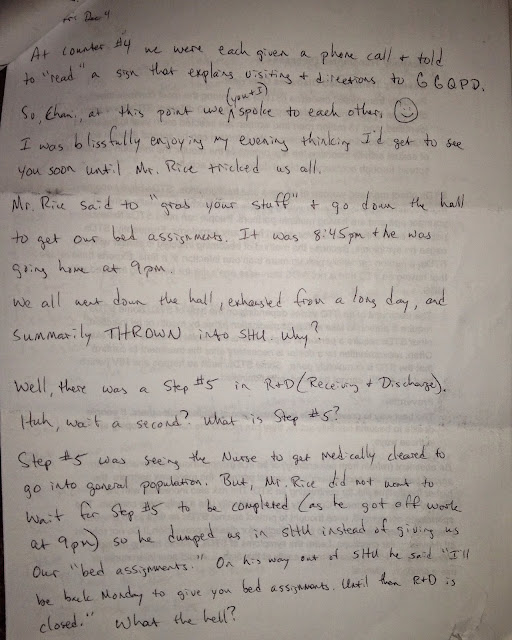 Fri Dec 4
At counter #4 we were each given a phone call + told
to "read" a sign that explains visiting + directions to
So, at this point we (you + I) spoke to each other, ☺
I was blissfully enjoying my evening thinking I'd get to see
you soon until Mr. Rice tricked us all.
Mr. Rice said to "grab your stuff" + go down the hall
to get our bed assignments. It was 8:45pm + he was
going home at 9pm.
We all went down the hall, exhausted from a long day, and
summarily THROWN into SHU. Why?
Well, there was a Step #5 in R+D (Receiving + Discharge).
Huh, wait a second? What is Step #5?
Step #5 was seeing the Nurse to get medically cleared to
go into general population. But, Mr. Rice did not want to
wait for Step #5 to be completed (as he got off work
at 9pm) so he dumped us in SHU instead of giving us
our "bed assignments." On his way out of SHU he said "I'll
be back Monday to give you bed assignments. Until then R+D is
closed." What the hell?